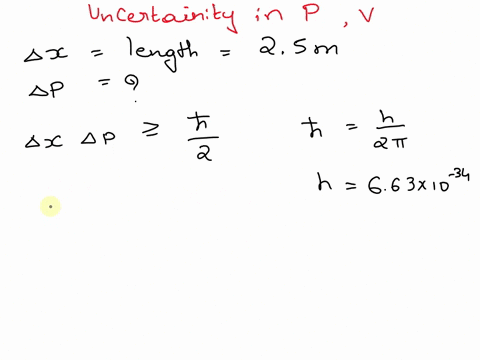 Uncertainity in P, V
Δx = length = 2.5m
ΔP = ?
Δx ΔP ≥ ħ/2
ħ = h/2π
h = 6.63×10^-34